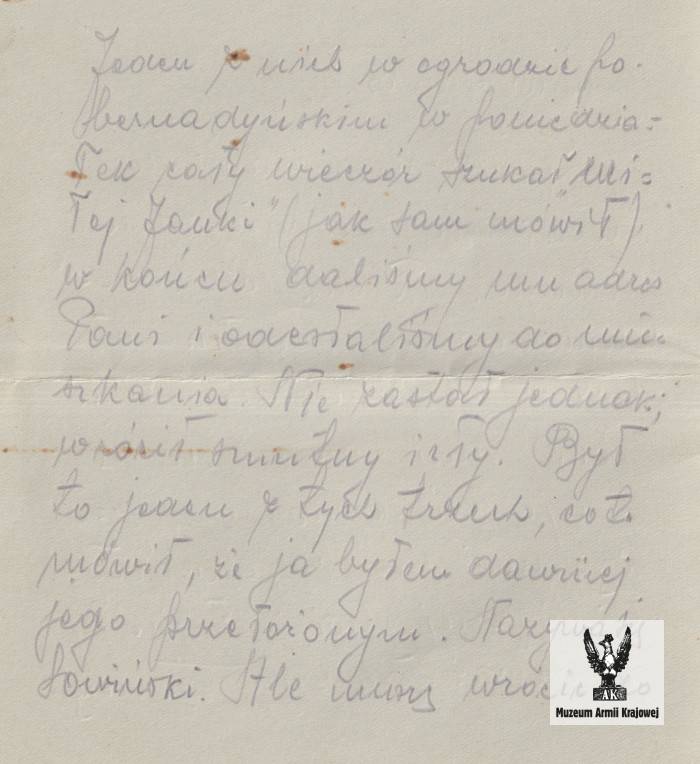 Jeden z nich w ogrodzie po-
bernadyńskim w poniedzia=
łek cały wieczór szukał „mi=
łej Janki" (jak sam mówił),
w końcu daliśmy mu adres
Pani i odesłaliśmy do mie-
szkania. Nie zastał jednak;
wrócił smutny i zły. Był
to jeden z tych trzech, co to
mówił, że ja byłem dawniej
jego przełożonym. Nazywa się
Łowiński. Ale muszę wrócić do
AK
Muzeum Armii Krajowej